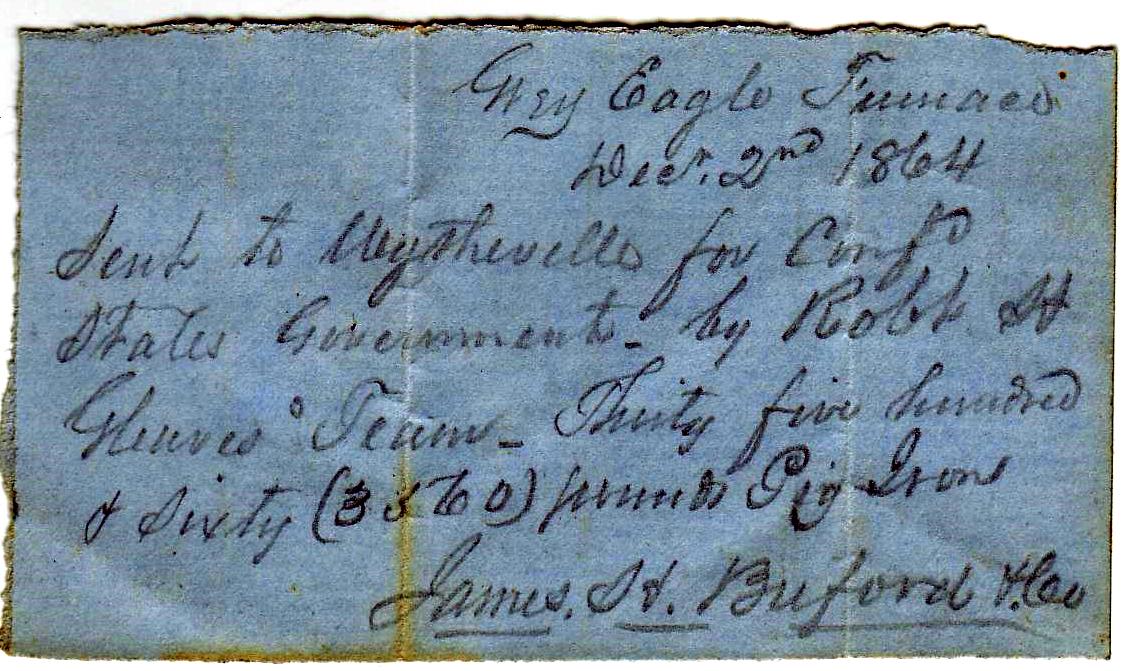 Grey Eagle Furnace
Decr. 2nd 1864
Sent to Wytheville for Confd
States Government - by Robt H
Gleaves' Team - Thirty five hundred
& Sixty (3560) pounds Pig Iron
James. H. Buford & Co